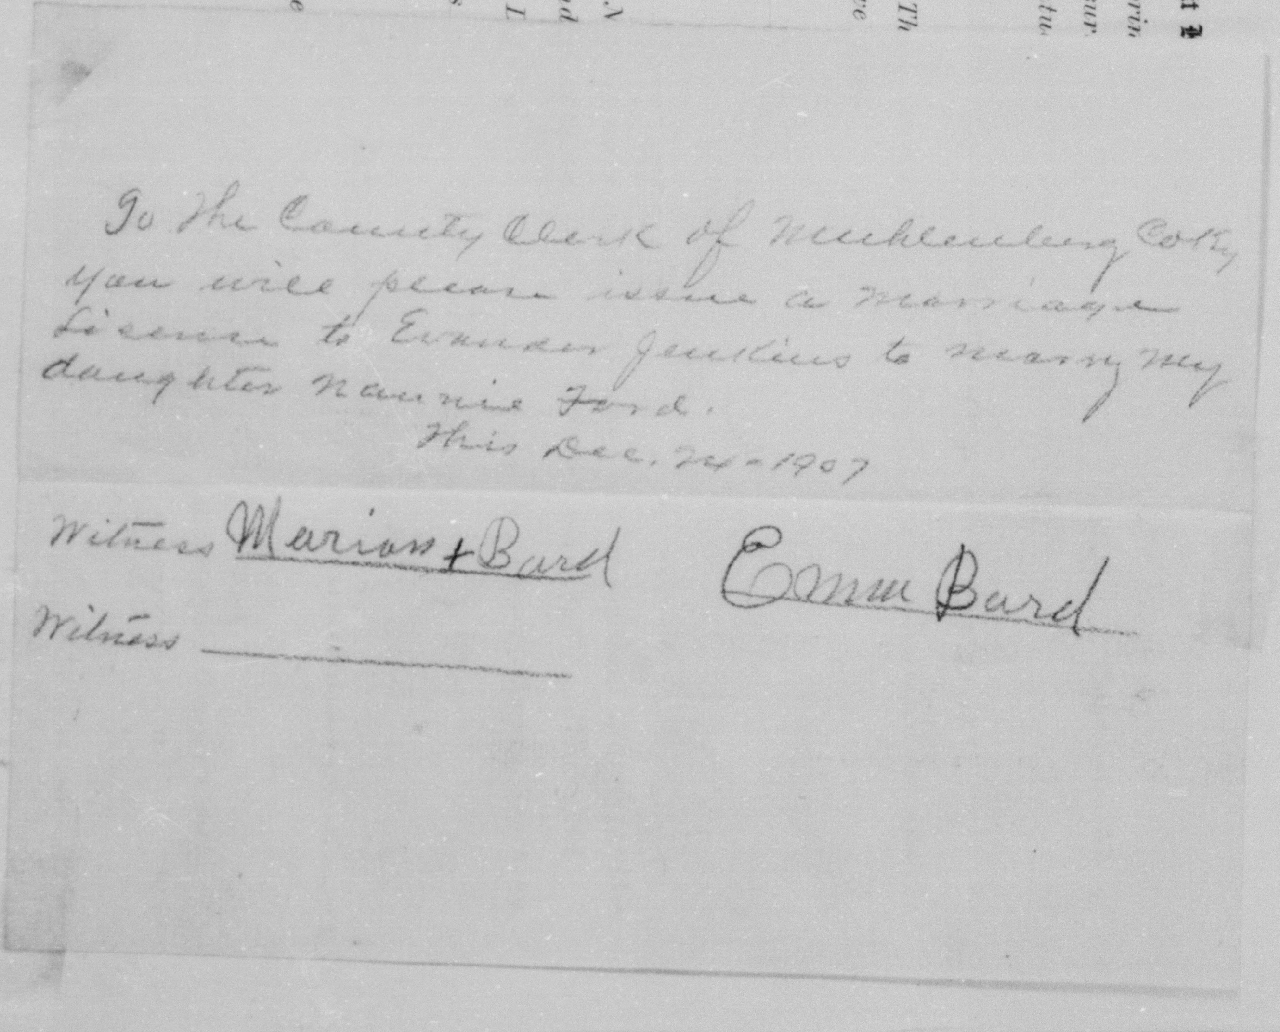 To The County Clerk of Muhlenberg Co Ky
You will please issue a marriage
Lisense to Evander Jenkins to marry my
daughter Nannie Ford.
This Dec. 24-1907
Witness Marion + Bard
Emma Bard
Witness